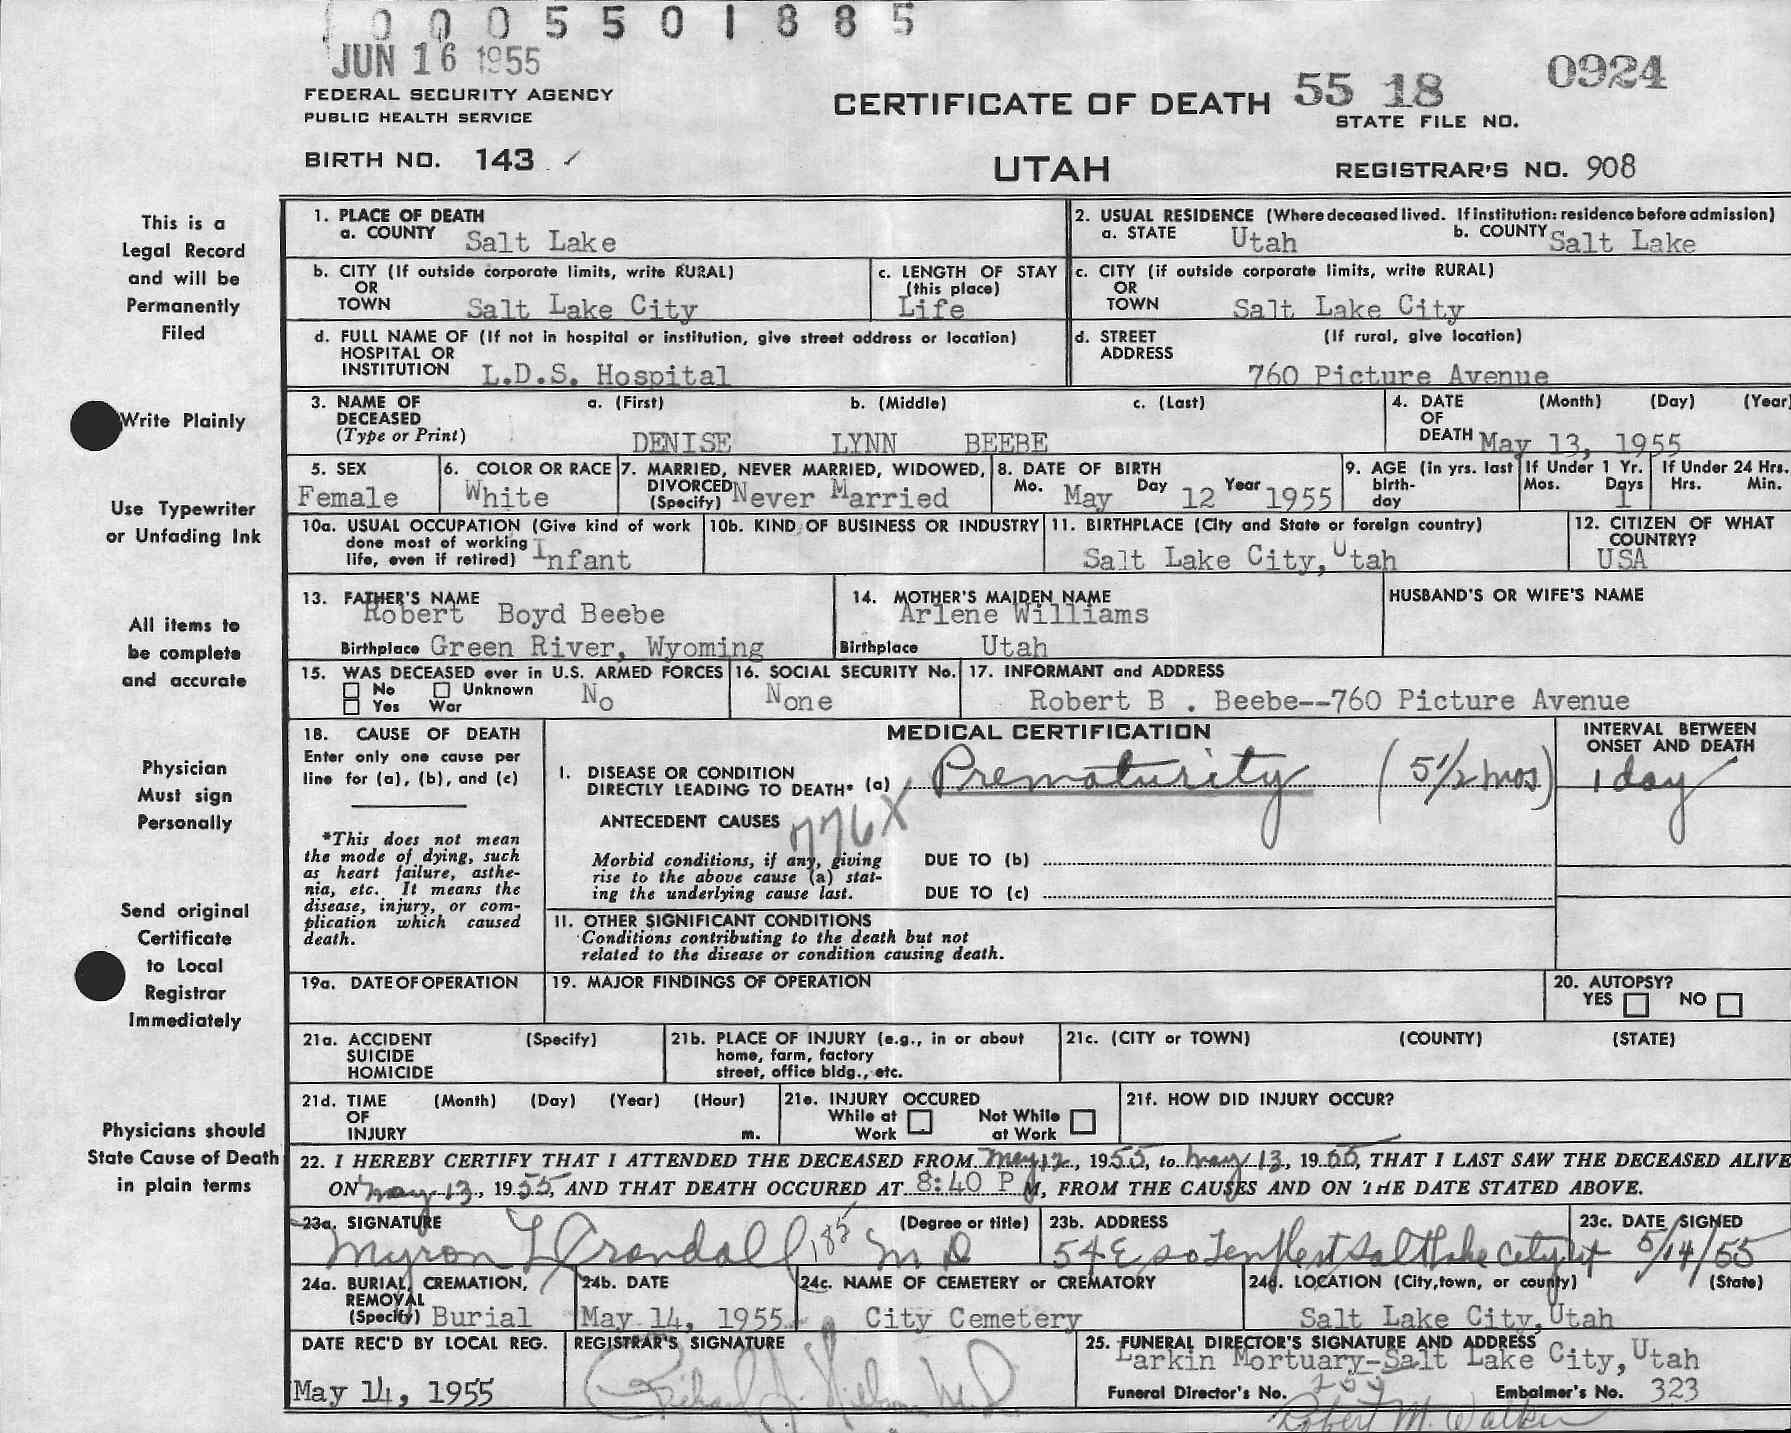 0005501885
JUN 16 1955
FEDERAL SECURITY AGENCY
PUBLIC HEALTH SERVICE
CERTIFICATE OF DEATH 55 18 0924
STATE FILE NO.
BIRTH NO. 143
UTAH
REGISTRAR'S NO. 908
This is a
Legal Record
and will be
Permanently
Filed
Write Plainly
Use Typewriter
or Unfading Ink
All items to
be complete
and accurate
Physician
Must sign
Personally
Send original
Certificate
to Local
Registrar
Immediately
Physicians should
State Cause of Death
in plain terms
1. PLACE OF DEATH
a. COUNTY Salt Lake
2. USUAL RESIDENCE (Where deceased lived. If institution: residence before admission)
a. STATE Utah b. COUNTY Salt Lake
b. CITY (If outside corporate limits, write RURAL)
OR
TOWN Salt Lake City
c. LENGTH OF STAY
(this place)
Life
c. CITY (if outside corporate limits, write RURAL)
OR
TOWN Salt Lake City
d. FULL NAME OF (If not in hospital or institution, give street address or location)
HOSPITAL OR
INSTITUTION L.D.S. Hospital
d. STREET (If rural, give location)
ADDRESS
760 Picture Avenue
3. NAME OF a. (First) b. (Middle) c. (Last)
DECEASED
(Type or Print) DENISE LYNN BEEBE
4. DATE (Month) (Day) (Year)
OF
DEATH May 13, 1955
5. SEX
Female
6. COLOR OR RACE
White
7. MARRIED, NEVER MARRIED, WIDOWED,
DIVORCED
(Specify) Never Married
8. DATE OF BIRTH
Mo. May Day 12 Year 1955
9. AGE (in yrs. last
birth-
day
If Under 1 Yr.
Mos. Days
1
If Under 24 Hrs.
Hrs. Min.
10a. USUAL OCCUPATION (Give kind of work
done most of working
life, even if retired) Infant
10b. KIND OF BUSINESS OR INDUSTRY
11. BIRTHPLACE (City and State or foreign country)
Salt Lake City, Utah
12. CITIZEN OF WHAT
COUNTRY?
USA
13. FATHER'S NAME
Robert Boyd Beebe
Birthplace Green River, Wyoming
14. MOTHER'S MAIDEN NAME
Arlene Williams
Birthplace Utah
HUSBAND'S OR WIFE'S NAME
15. WAS DECEASED ever in U.S. ARMED FORCES
No Unknown
Yes War
No
16. SOCIAL SECURITY No.
None
17. INFORMANT and ADDRESS
Robert B . Beebe--760 Picture Avenue
18. CAUSE OF DEATH
Enter only one cause per
line for (a), (b), and (c)
*This does not mean
the mode of dying, such
as heart failure, asthe-
nia, etc. It means the
disease, injury, or com-
plication which caused
death.
MEDICAL CERTIFICATION
INTERVAL BETWEEN
ONSET AND DEATH
I. DISEASE OR CONDITION
DIRECTLY LEADING TO DEATH* (a) Prematurity (5 1/2 mos) 1 day
ANTECEDENT CAUSES 776X
Morbid conditions, if any, giving
rise to the above cause (a) stat-
ing the underlying cause last.
DUE TO (b)
DUE TO (c)
II. OTHER SIGNIFICANT CONDITIONS
Conditions contributing to the death but not
related to the disease or condition causing death.
19a. DATE OF OPERATION
19. MAJOR FINDINGS OF OPERATION
20. AUTOPSY?
YES NO
21a. ACCIDENT (Specify)
SUICIDE
HOMICIDE
21b. PLACE OF INJURY (e.g., in or about
home, farm, factory
street, office bldg., etc.
21c. (CITY or TOWN) (COUNTY) (STATE)
21d. TIME (Month) (Day) (Year) (Hour)
OF
INJURY m.
21e. INJURY OCCURED
While at Not While
Work at Work
21f. HOW DID INJURY OCCUR?
22. I HEREBY CERTIFY THAT I ATTENDED THE DECEASED FROM May 12, 1955, to May 13, 1955, THAT I LAST SAW THE DECEASED ALIVE
ON May 13, 1955, AND THAT DEATH OCCURED AT 8:40 P M, FROM THE CAUSES AND ON THE DATE STATED ABOVE.
23a. SIGNATURE (Degree or title)
Myron L Crandall 185 M D
23b. ADDRESS
54 E so Temple st Salt Lake City Ut
23c. DATE SIGNED
5/14/55
24a. BURIAL, CREMATION,
REMOVAL
(Specify) Burial
24b. DATE
May 14, 1955
24c. NAME OF CEMETERY or CREMATORY
City Cemetery
24d. LOCATION (City, town, or county) (State)
Salt Lake City, Utah
DATE REC'D BY LOCAL REG.
May 14, 1955
REGISTRAR'S SIGNATURE
25. FUNERAL DIRECTOR'S SIGNATURE AND ADDRESS
Larkin Mortuary-Salt Lake City, Utah
Funeral Director's No. Embalmer's No. 323
Robert M. Walker